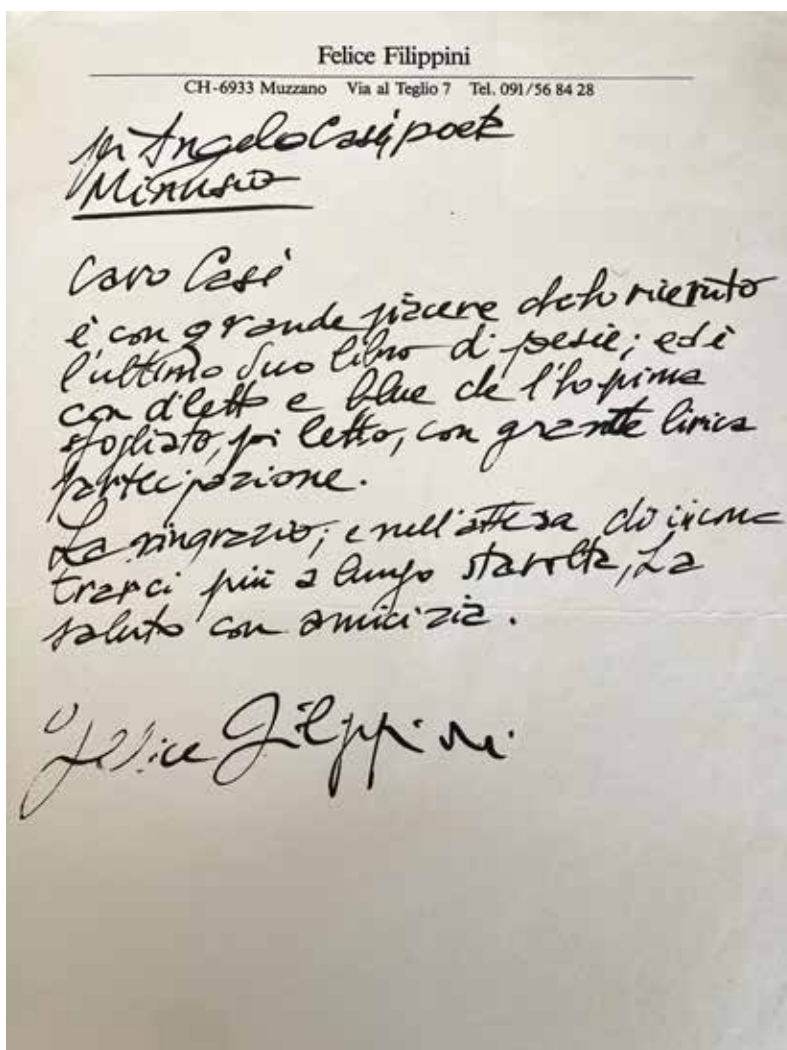 Felice Filippini
CH-6933 Muzzano Via al Teglio 7 Tel. 091/56 84 28
per Angelo Casè poeta
Minusio
Caro Casè
è con grande piacere che ho ricevuto
l'ultimo Suo libro di poesie; ed è
con diletto e che l'ho prima
sfogliato, poi letto, con grande lirica
partecipazione.
La ringrazio; e nell'attesa di incon=
trarci più a lungo stavolta, La
saluto con amicizia.
Felice Filippini